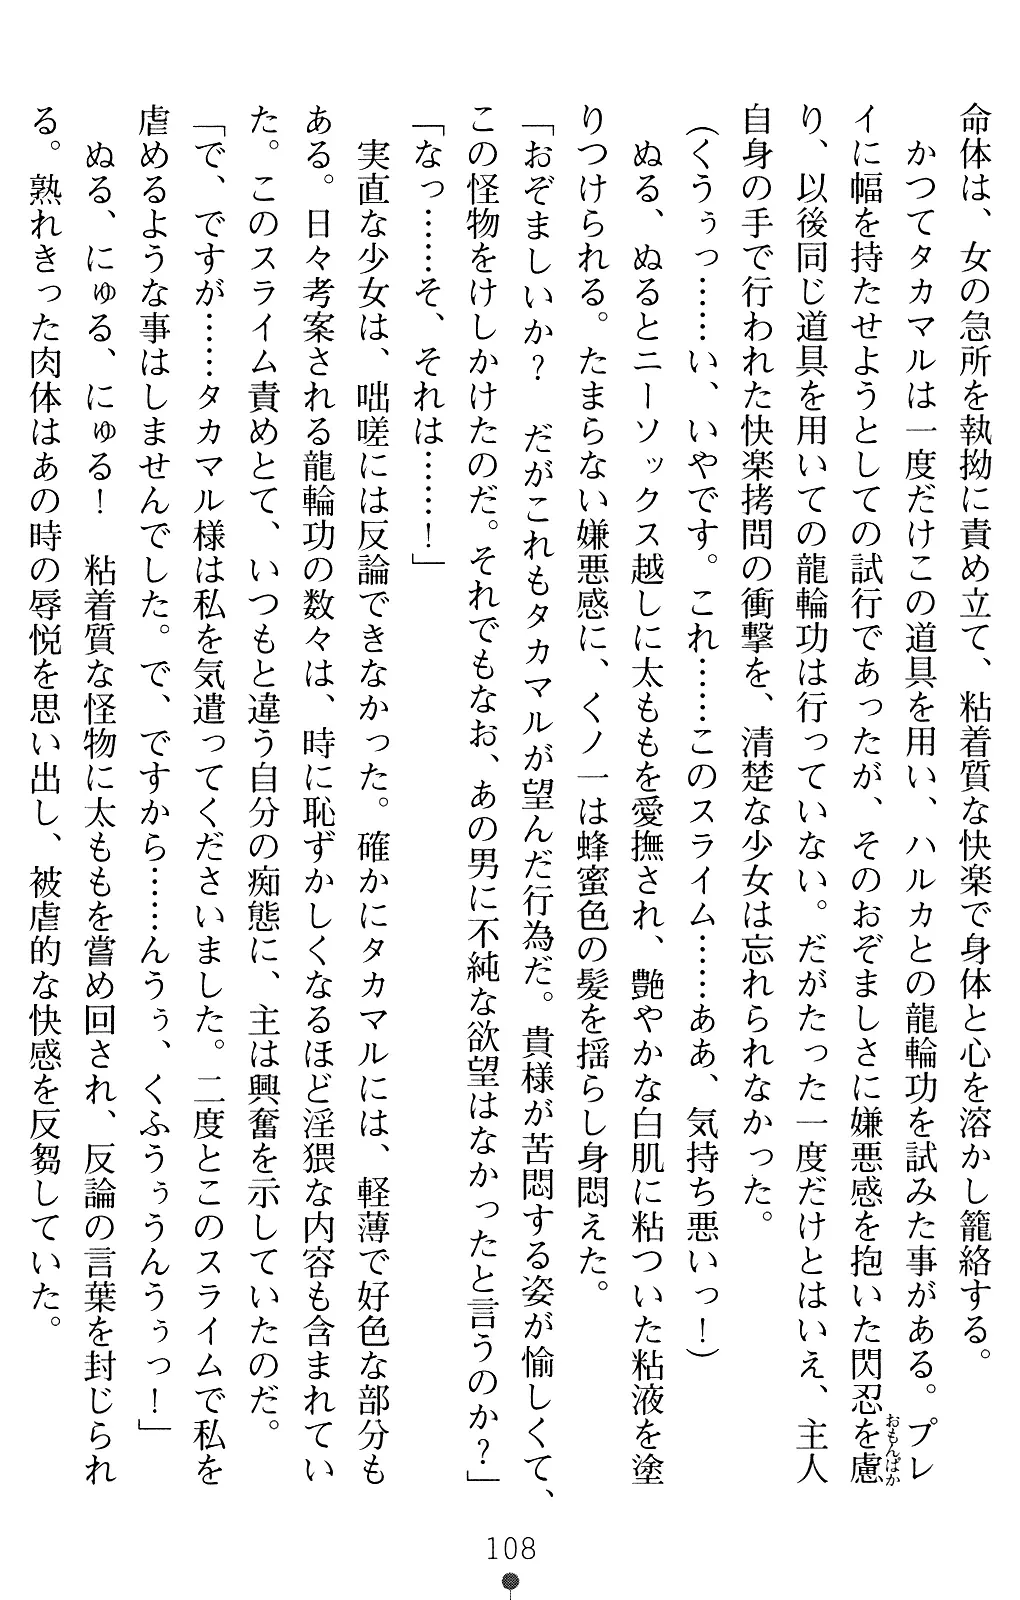 命体は、女の急所を執拗に責め立て、粘着質な快楽で身体と心を溶かし籠絡する。
　かつてタカマルは一度だけこの道具を用い、ハルカとの龍輪功を試みた事がある。プレ
イに幅を持たせようとしての試行であったが、そのおぞましさに嫌悪感を抱いた閃忍を慮おもんぱか
り、以後同じ道具を用いての龍輪功は行っていない。だがたった一度だけとはいえ、主人
自身の手で行われた快楽拷問の衝撃を、清楚な少女は忘れられなかった。
（くうぅっ……い、いやです。これ……このスライム……ああ、気持ち悪いっ！）
　ぬる、ぬるとニーソックス越しに太ももを愛撫され、艶やかな白肌に粘ついた粘液を塗
りつけられる。たまらない嫌悪感に、くノ一は蜂蜜色の髪を揺らし身悶えた。
「おぞましいか？　だがこれもタカマルが望んだ行為だ。貴様が苦悶する姿が愉しくて、
この怪物をけしかけたのだ。それでもなお、あの男に不純な欲望はなかったと言うのか？」
「なっ……そ、それは……！」
　実直な少女は、咄嗟には反論できなかった。確かにタカマルには、軽薄で好色な部分も
ある。日々考案される龍輪功の数々は、時に恥ずかしくなるほど淫猥な内容も含まれてい
た。このスライム責めとて、いつもと違う自分の痴態に、主は興奮を示していたのだ。
「で、ですが……タカマル様は私を気遣ってくださいました。二度とこのスライムで私を
虐めるような事はしませんでした。で、ですから……んうぅ、くふうぅうんうぅっ！」
　ぬる、にゅる、にゅる！　粘着質な怪物に太ももを嘗め回され、反論の言葉を封じられ
る。熟れきった肉体はあの時の辱悦を思い出し、被虐的な快感を反芻していた。
108